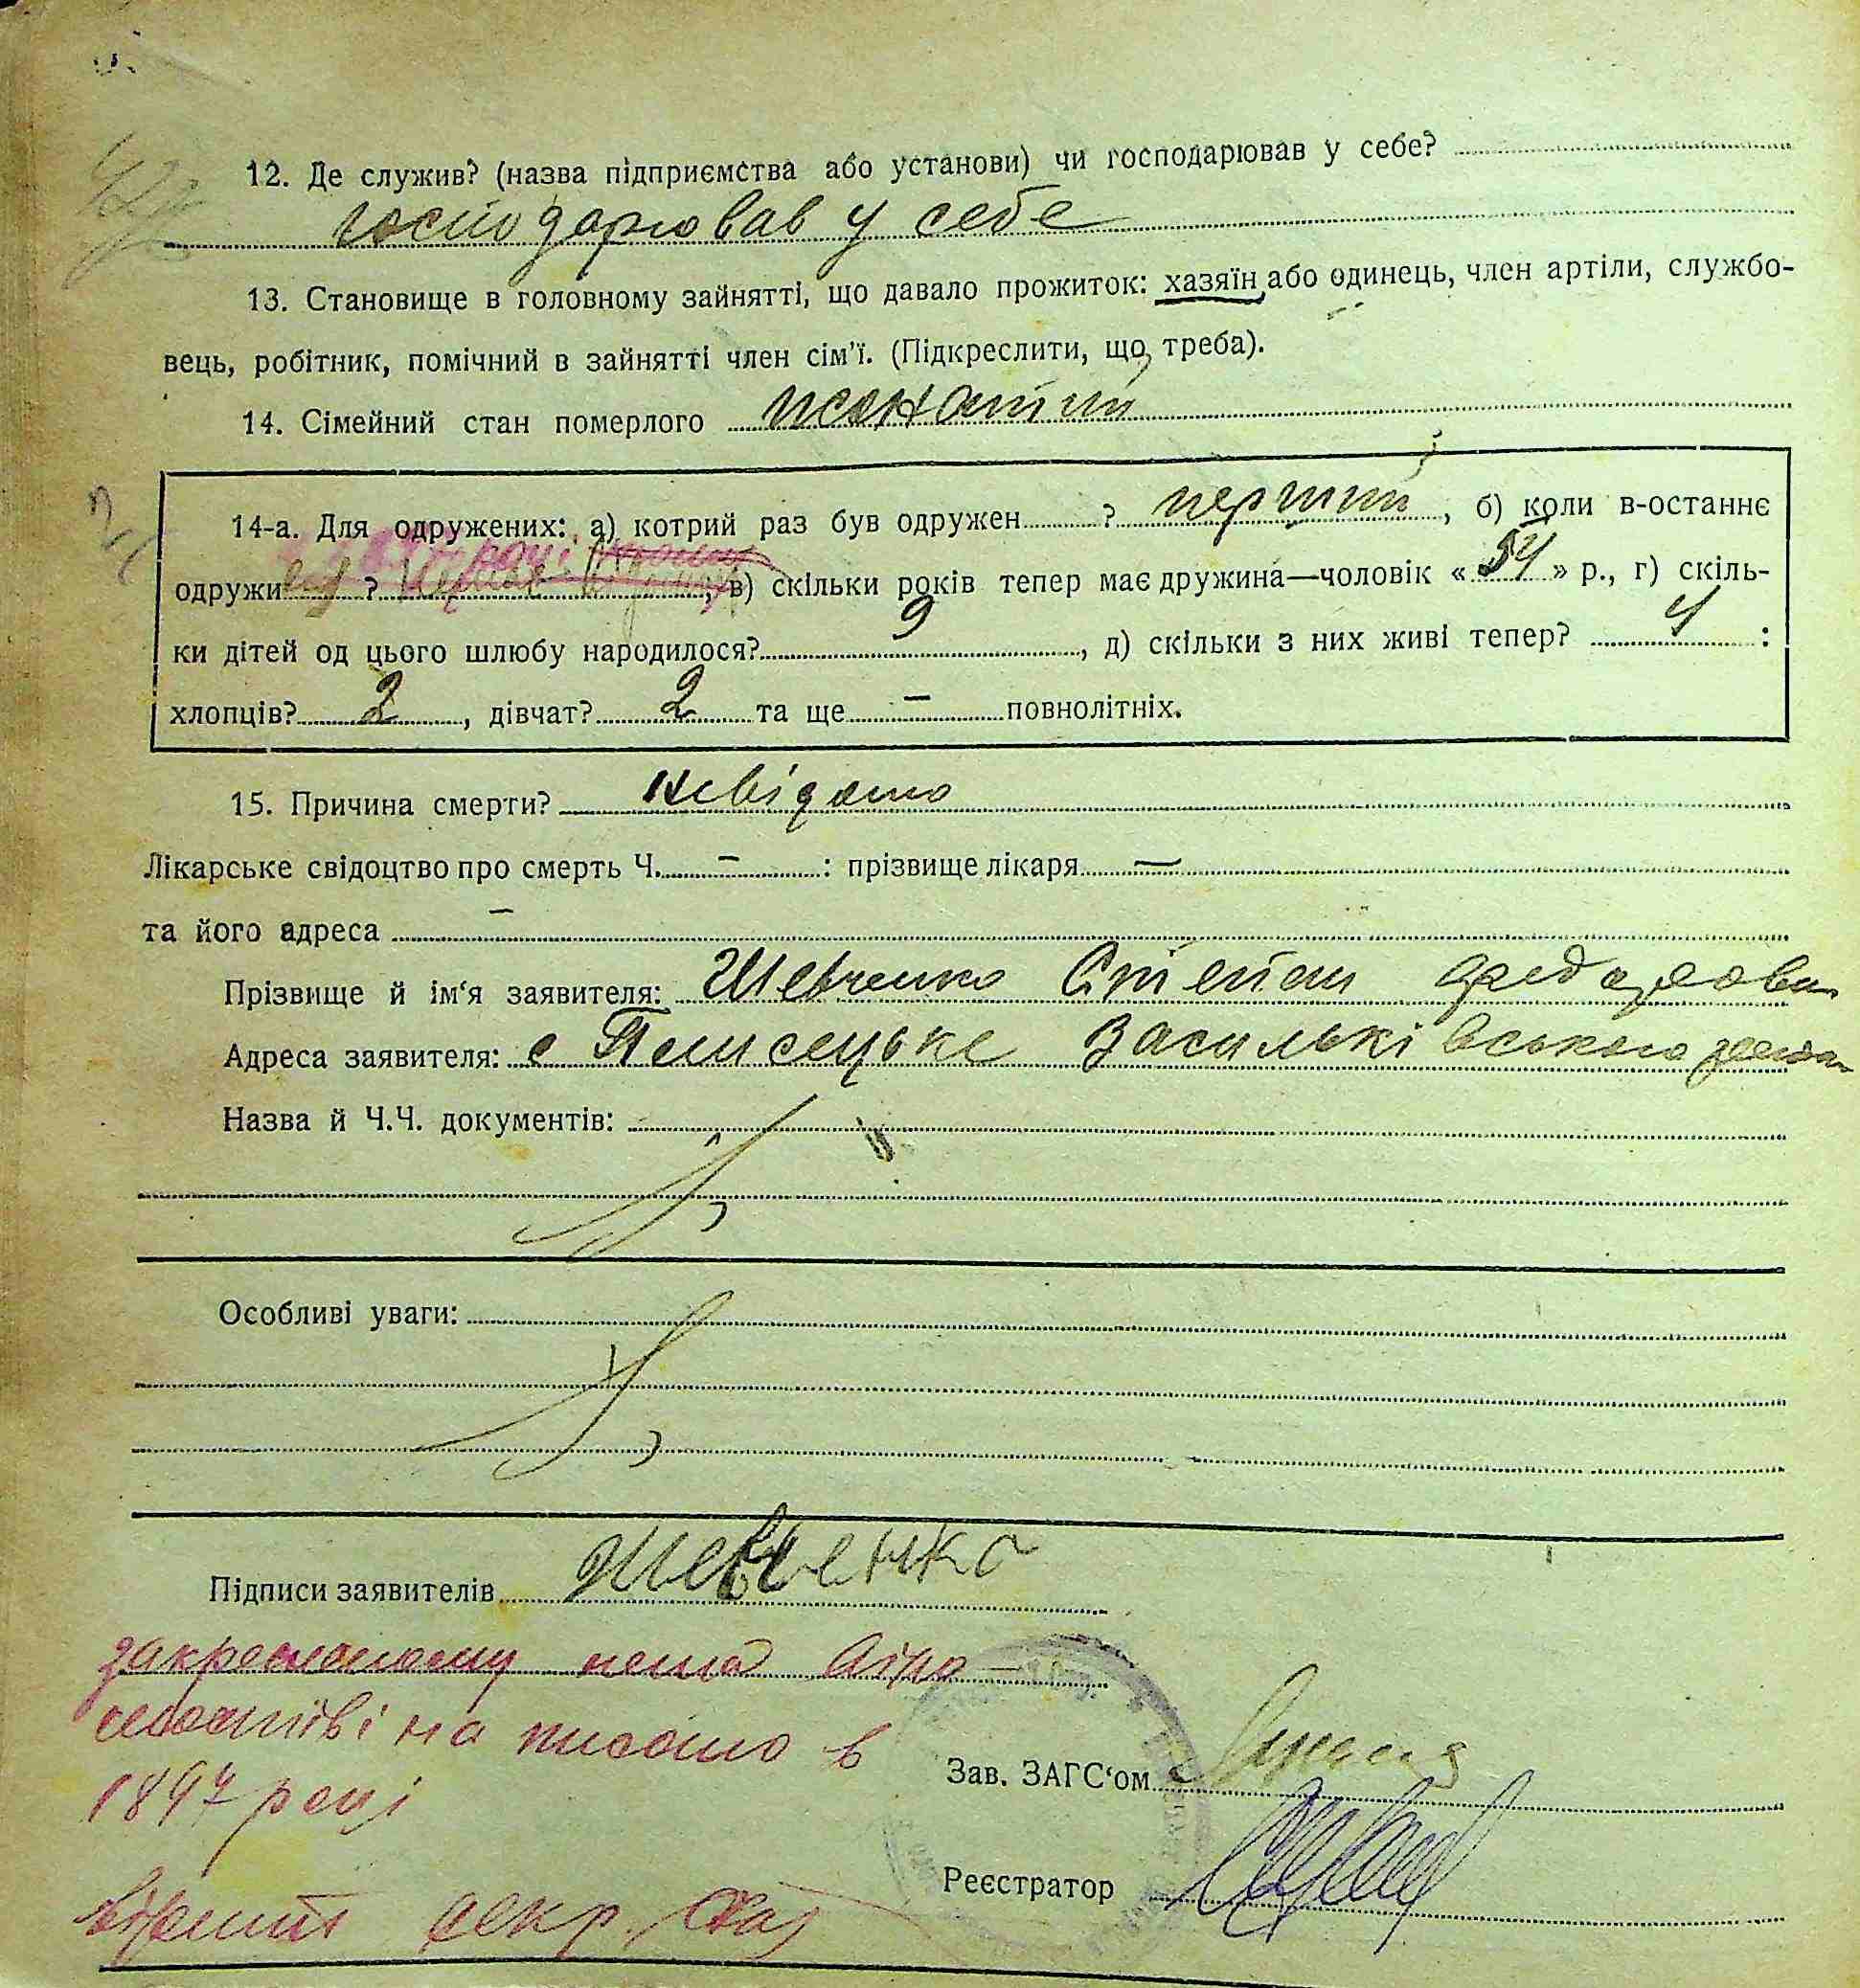 12. Де служив? (назва підприємства або установи) чи господарював у себе?
господарював у себе
13. Становище в головному зайнятті, що давало прожиток: хазяїн або одинець, член артіли, службо-
вець, робітник, помічний в зайнятті член сім'ї. (Підкреслити, що треба).
14. Сімейний стан померлого жонатий
14-а. Для одружених: а) котрий раз був одружен ? перший, б) коли в-останнє
одружи ? , в) скільки років тепер має дружина—чоловік « 54 » р., г) скіль-
ки дітей од цього шлюбу народилося? 9, д) скільки з них живі тепер? 4 :
хлопців? 2, дівчат? 2 та ще — повнолітніх.
15. Причина смерти? невідомо
Лікарське свідоцтво про смерть Ч. — : прізвище лікаря —
та його адреса —
Прізвище й ім'я заявителя: Шевченко Степан
Адреса заявителя: с Плисецьке Васильківського
Назва й Ч.Ч. документів:
Особливі уваги:
Підписи заявителів Шевченко
закресленому нема
на писано в
1897 році
Зав. ЗАГС'ом
Реєстратор
секр.